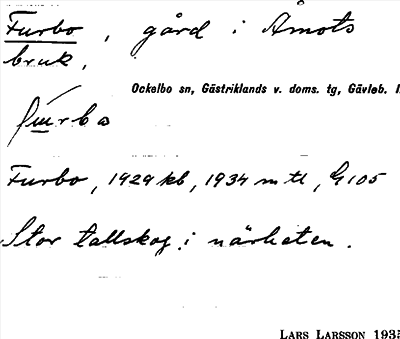 Furbo, gård i Åmots
bruk,
Ockelbo sn, Gästriklands v. doms. tg, Gävleb. l.
Furbo, 1929 kb, 1934 mtl, G 105
Stor tallskog i närheten.
LARS LARSSON 1935